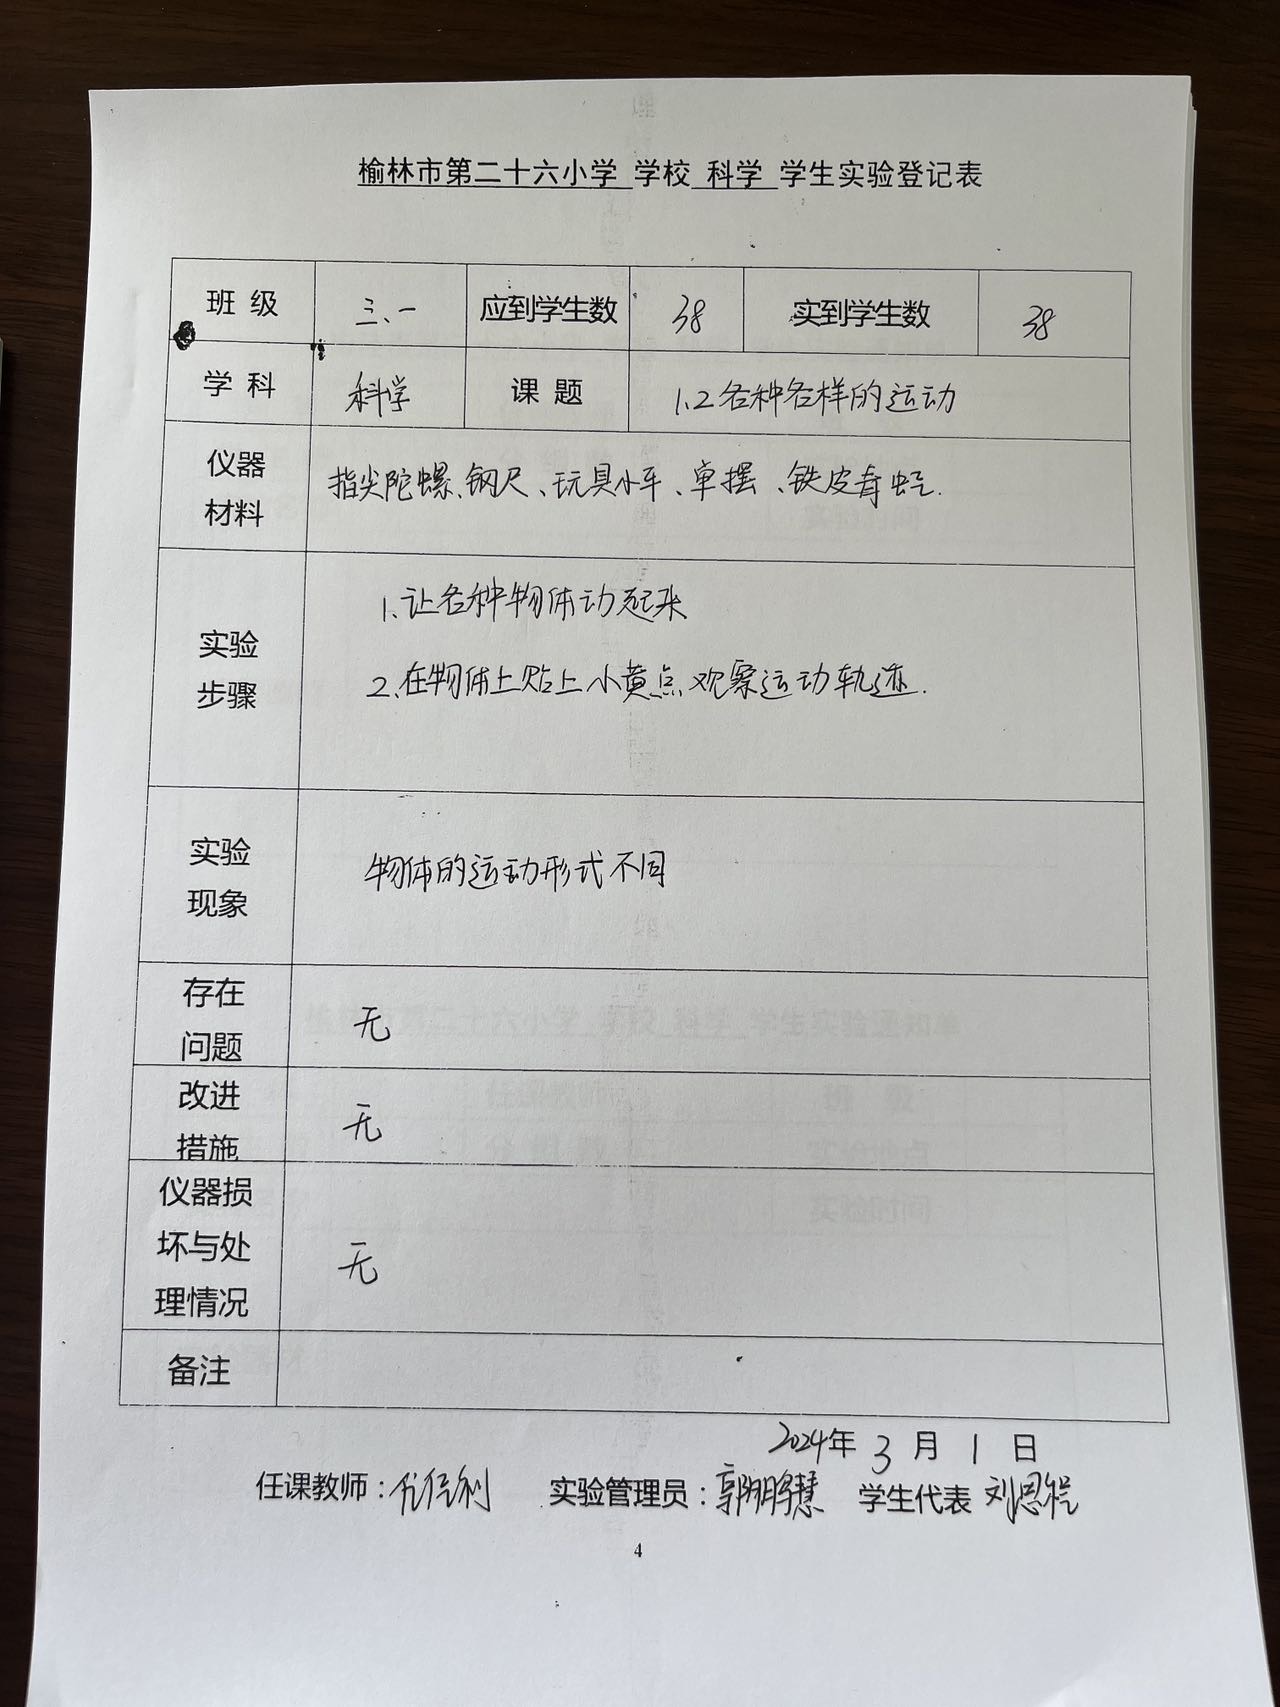 榆林市第二十六小学 学校 科学 学生实验登记表
班级 三、一 应到学生数 38 实到学生数 38
学科 科学 课题 1.2各种各样的运动
仪器
材料
指尖陀螺、钢尺、玩具小车、单摆、铁皮青蛙.
实验
步骤
1、让各种物体动起来
2、在物体上贴上小黄点观察运动轨迹.
实验
现象
物体的运动形式不同
存在
问题
无
改进
措施
无
仪器损
坏与处
理情况
无
备注
2024年 3 月 1 日
任课教师: 实验管理员: 学生代表 刘恩程
4